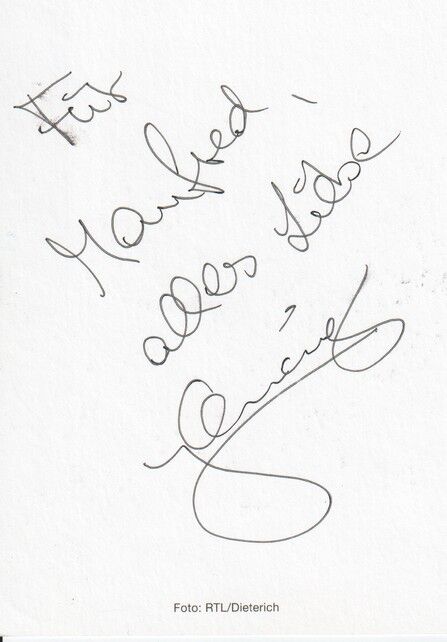 Für
Manfred -
alles Liebe
Foto: RTL/Dieterich